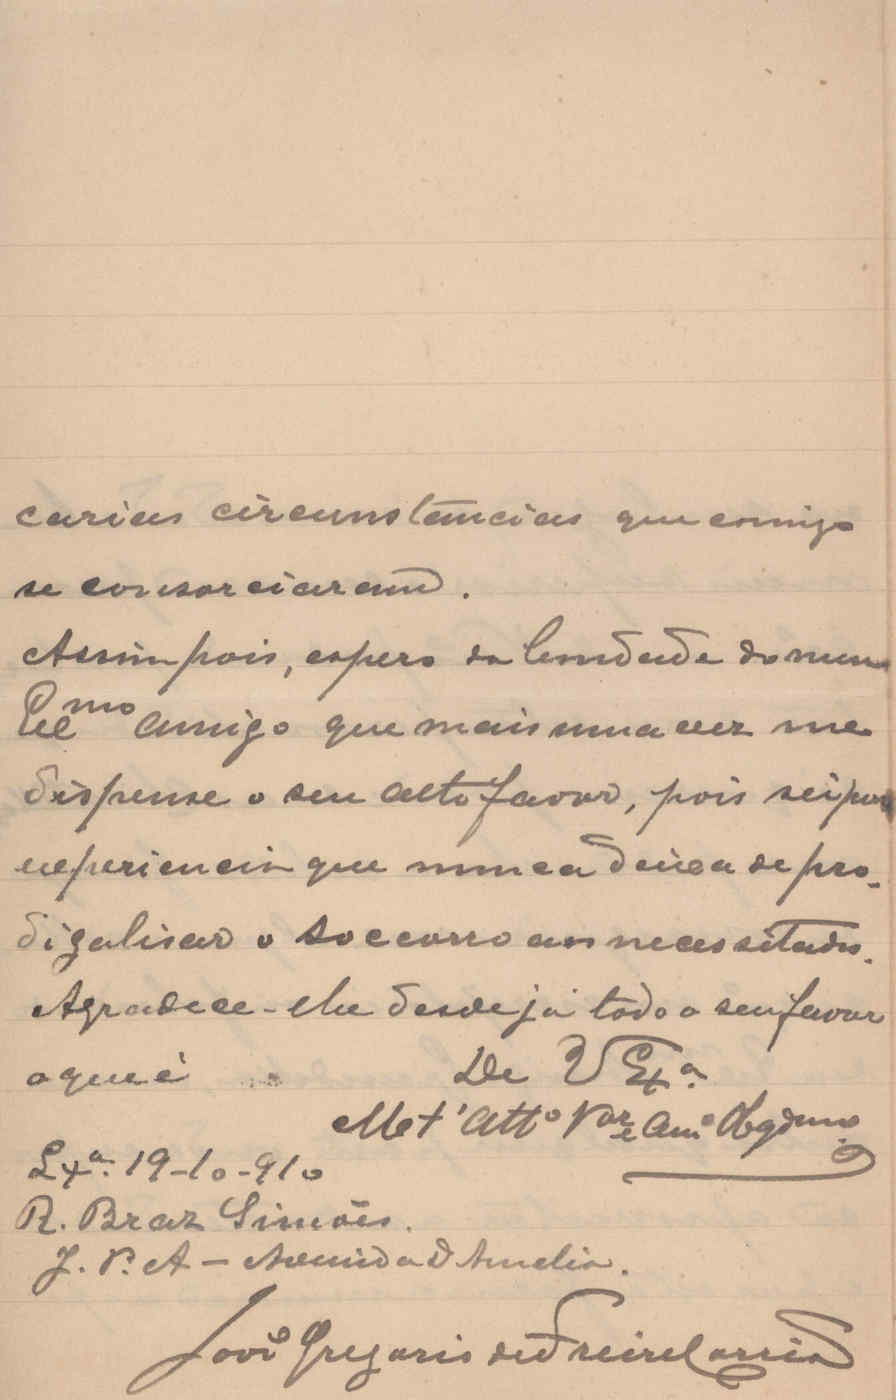 carias circunstancias que comigo
se consorciaram.
Assim pois, espero da bondade do meu
Ex.mo amigo que mais uma vez me
dispense o seu alto favor, pois sei por
experiencia que nunca deixa de pro-
digalisar o soccorro aos necessitados.
Agradece-lhe desde já todo o seu favor
o que é De V Ex.ª
Mt.º Att.º V.or e Am.º Obgdmo
Lx.ª 19-10-910
R. Braz Simões.
J. P. A - Avenida D Amelia.
José Gregorio de Freire Correia